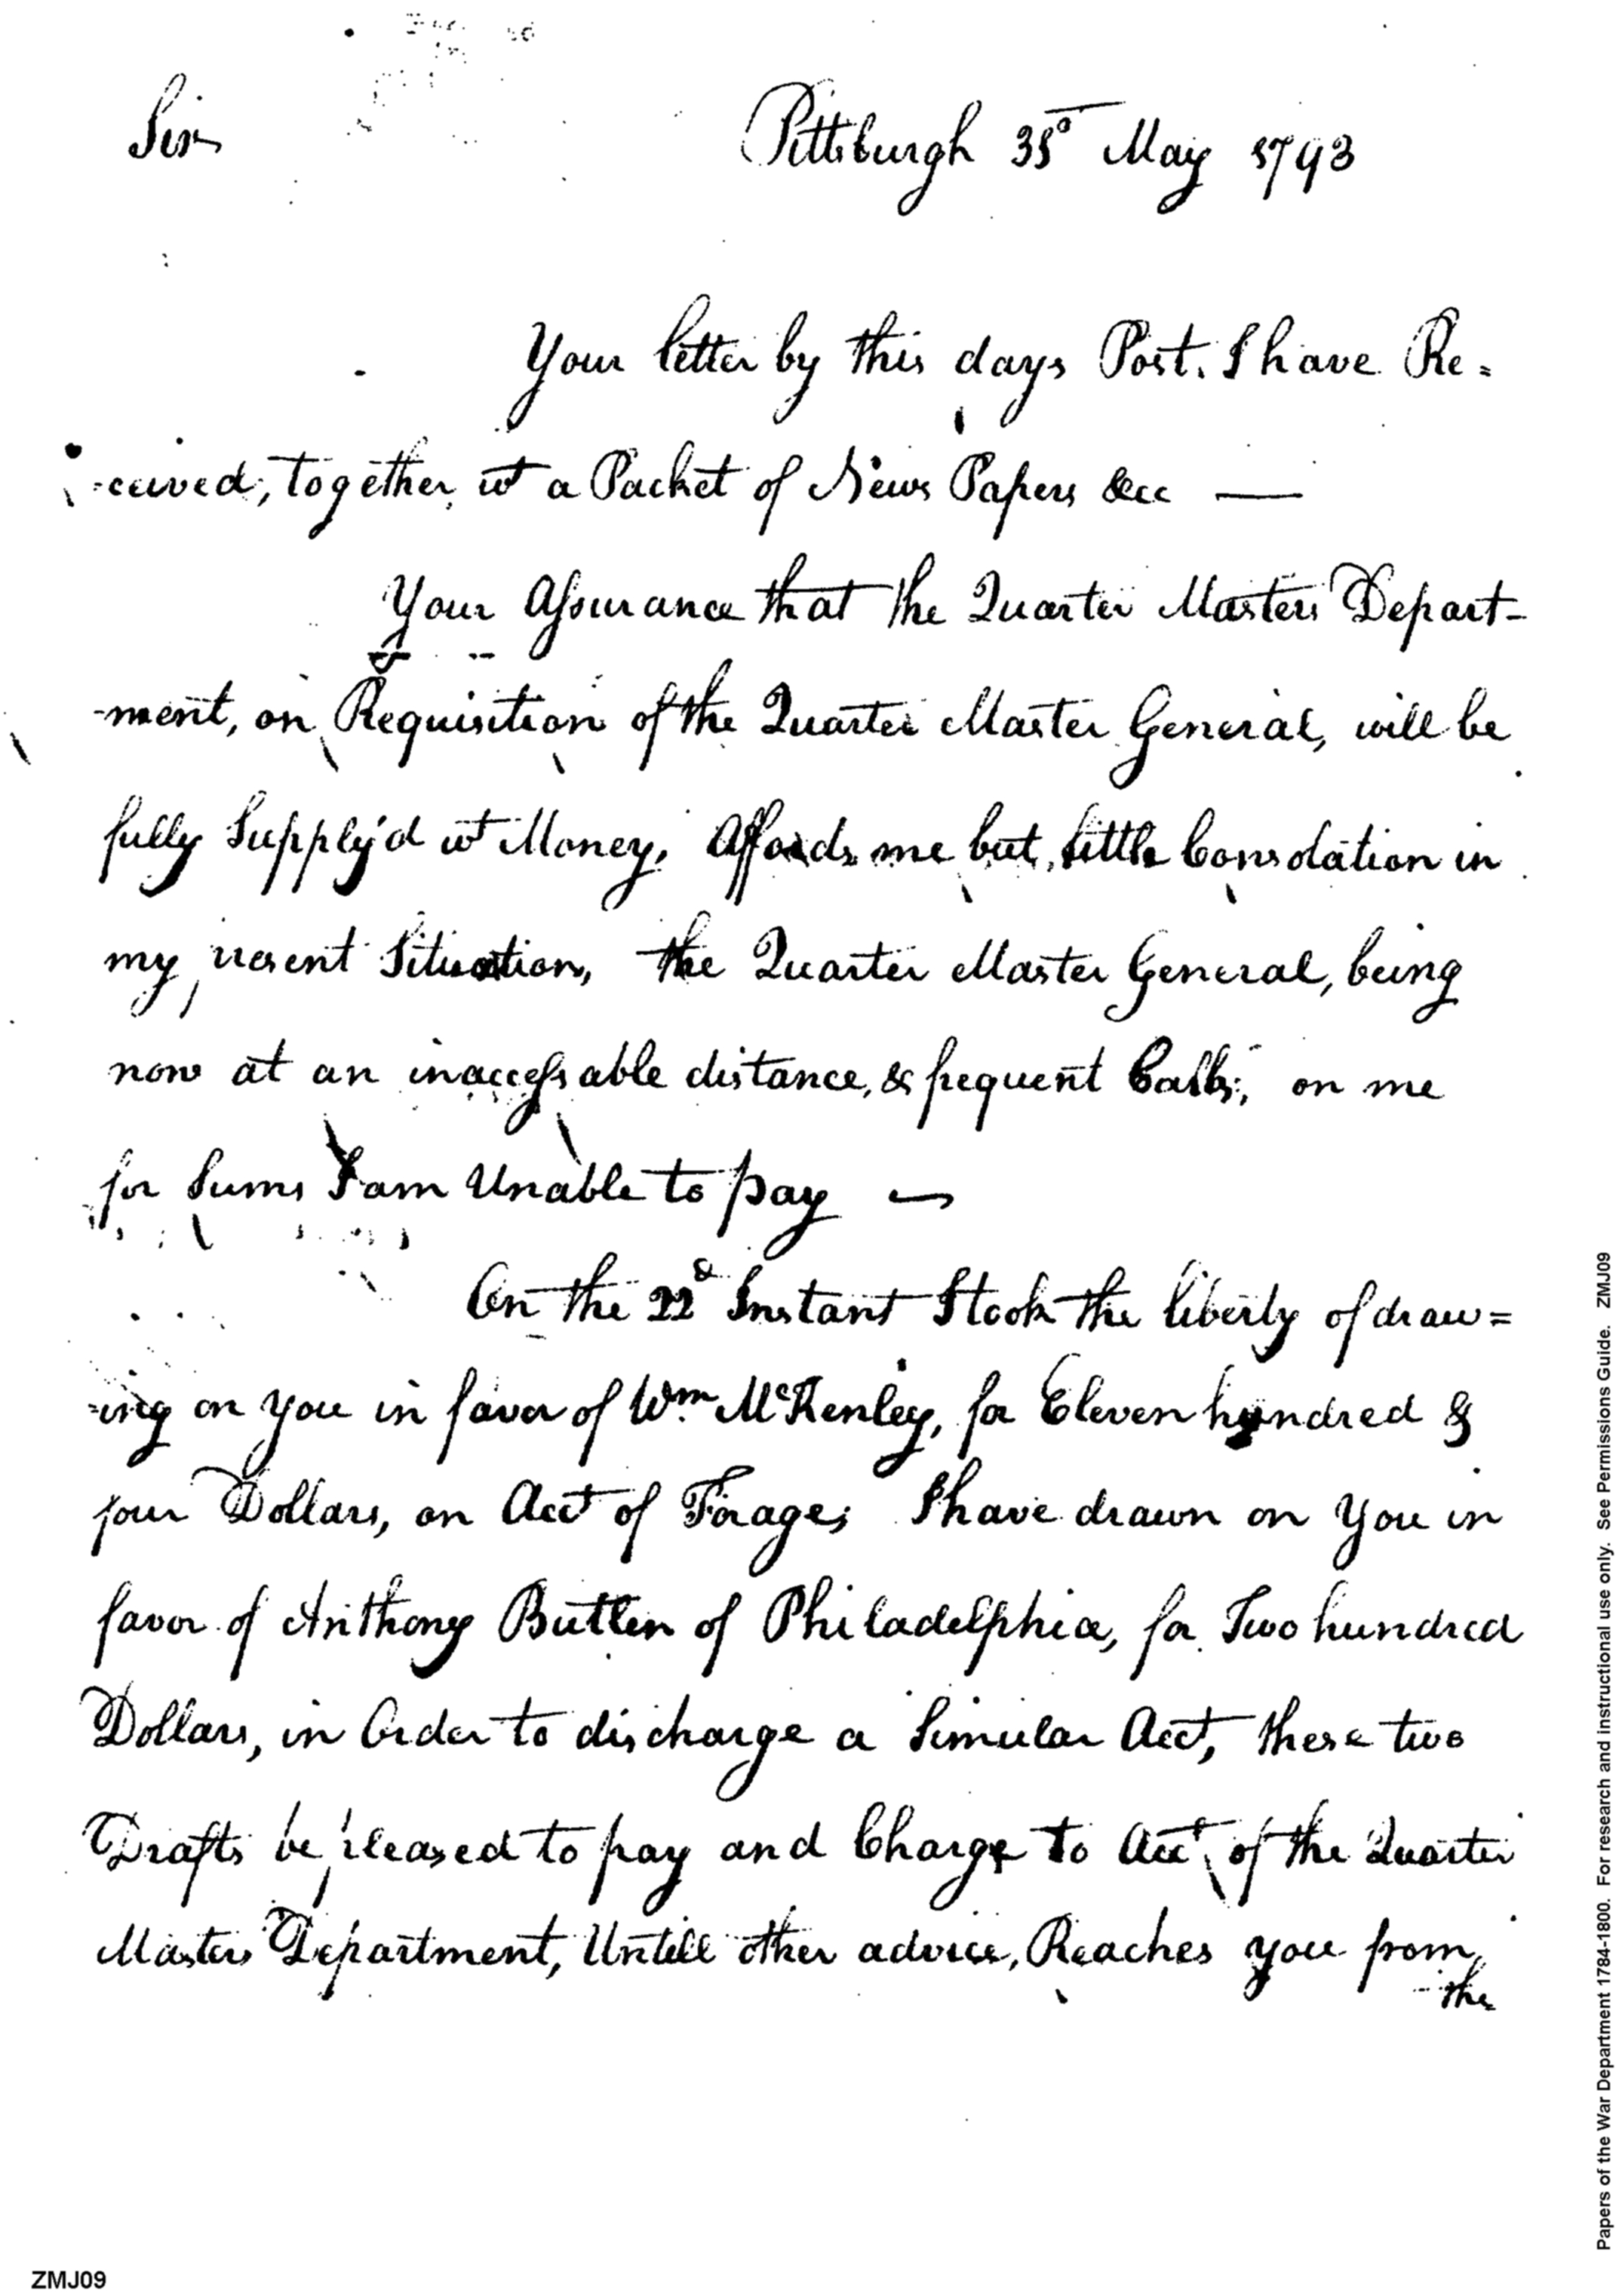 Sir
Pittsburgh 31st May 1793
Your letter by this days Post. I have Re=
=ceived, together wt a Packet of News Papers &cc —
Your Assurance that the Quarter Masters Depart-
-ment, on Requisition of the Quarter Master General, will be
fully Supply'd wt Money, Affords me but little Consolation in
my present Situation, the Quarter Master General, being
now at an inaccessable distance, & frequent Calls, on me
for Sums I am Unable to pay —
On the 22d Instant I took the liberty of draw=
=ing on you in favor of Wm. McKenley, for Eleven hundred &
four Dollars, on Acct of Forage; I have drawn on You in
favor of Anthony Butler of Philadelphia, for Two hundred
Dollars, in Order to discharge a Simular Acct, these two
Drafts be pleased to pay and Charge to Acct of the Quarter
Masters Department, Untill other advice, Reaches you from
the
ZMJ09
Papers of the War Department 1784-1800. For research and instructional use only. See Permissions Guide. ZMJ09